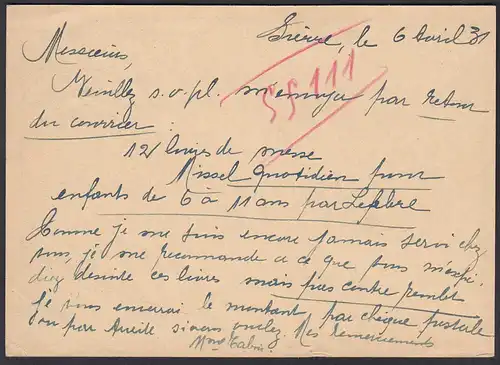 Sierre, le 6 Avril 31
Messieurs,
Veuillez s.v.pl. m'envoyer par retour
du courrier :
55111
12 livres de messe
Missel Quotidien pour
enfants de 6 à 11 ans par Lefebre
Comme je me suis encore jamais servi chez
vous, je me recommande à ce que vous
désire ces livres mais pas contre rembt
Je vous enverrai le montant par chèque postale
ou par si vous voulez. Mes remerciements
Mme